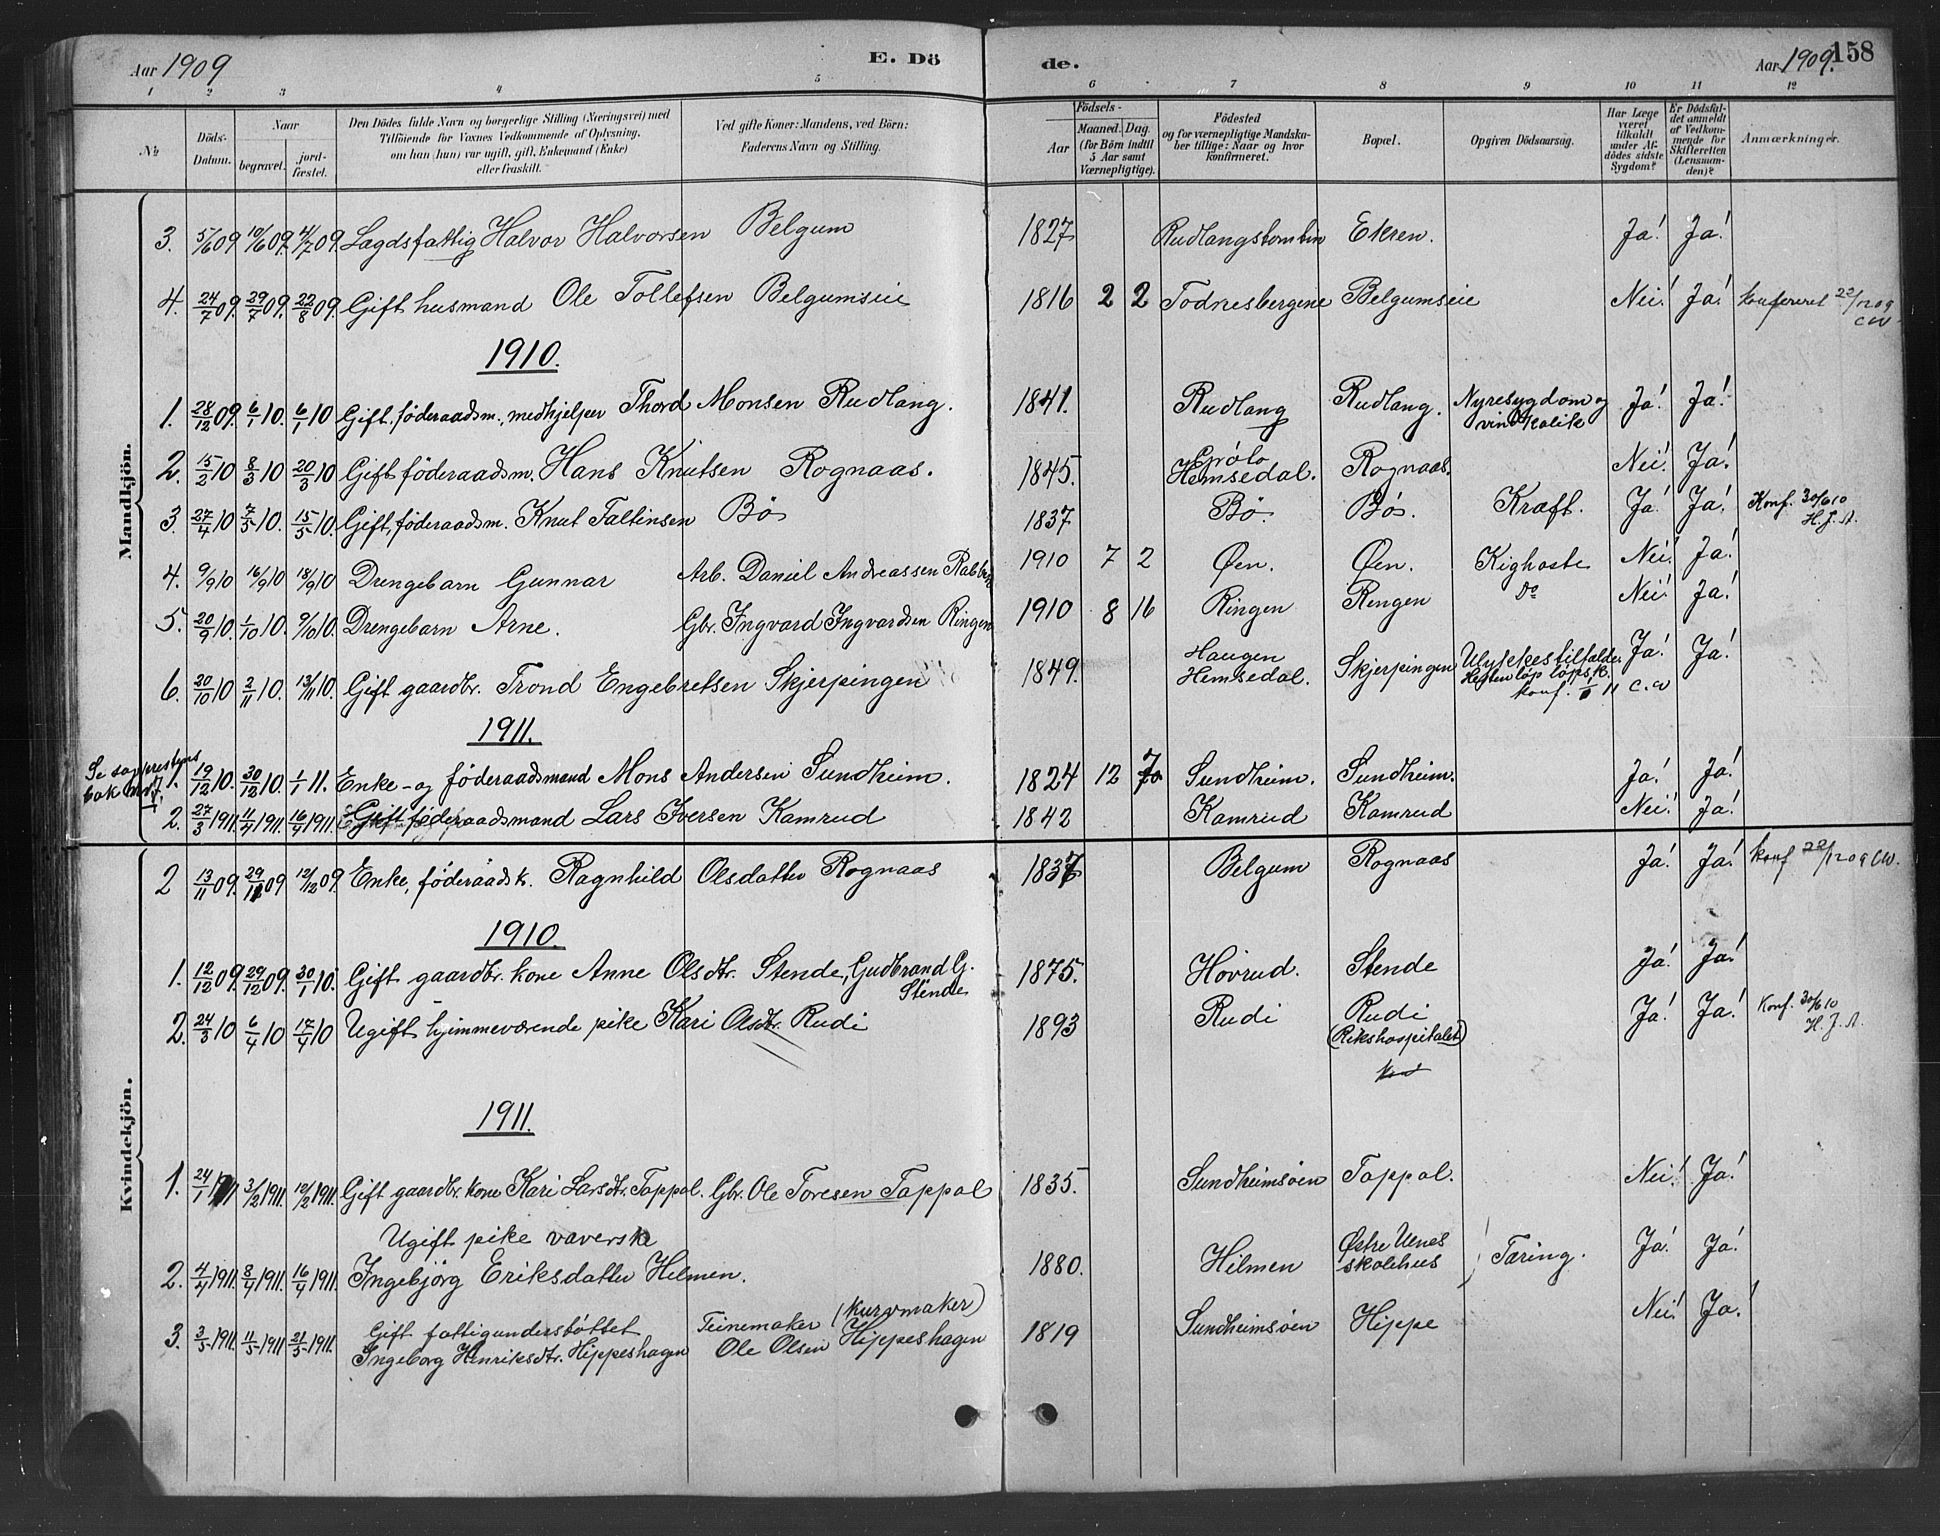 Aar 1909 E. Dö
de. Aar 1909. 158
1 2 3 4 5 6 7 8 9 10 11 12
No Döds-Datum. Naar begravet. jordfæstet. Den Dödes fulde Navn og borgerlige Stilling (Næringsvei) med Tilföiende for Voxnes Vedkommende af Oplysning, om han (hun) var ugift, gift, Enkemand (Enke) eller fraskilt. Ved gifte Koner: Mandens, ved Börn: Faderens Navn og Stilling. Födsels- Aar Maaned. Dag. (for Börn indtil 5 Aar samt Værnepligtige). Födested og for værnepligtige Mandskaber tillige: Naar og hvor konfirmeret. Bopæl. Opgiven Dödsaarsag. Har Læge været tilkaldt under Afdödes sidste Sygdom? Er Dödsfaldet anmeldt af Vedkommende for Skifteretten (Lensmanden)? Anmærkninger.
Mandkjön.
3. 5/6 09. 10/6 09. 4/7 09. Lægdsfattig Halvor Halvorsen Belgum 1827 Rudlangstomten Ekren. Ja! Ja!
4. 24/7 09. 29/7 09. 22/8 09. Gift husmand Ole Tollefsen Belgumseie 1816 2 2 Todnesbergene Belgumseie Nei! Ja! konfereret 22/12 09 CW
1910.
1. 28/12 09. 6/1 10. 6/1 10 Gift, föderaadsm., medhjelper Thord Monsen Rudlang. 1841. Rudlang Rudlang. Nyresygdom og vindkolik Ja! Ja!
2. 15/2 10 8/3 10 20/3 10 Gift föderaadsm. Hans Knutsen Rognaas. 1845. Gröto Hemsedal. Rognaas. Nei! Ja!
3. 27/4 10 7/5 10. 15/5 10. Gift, föderaadsm. Knut Taltinsen Bö 1837 Bö. Bö. Kræft. Ja! Ja! Konf. 30/6 10 H. J. A.
4. 9/9 10 16/9 10 18/9 10 Drengebarn Gunnar Arb. Daniel Andreassen Rabben 1910 7 2 Øen. Øen. Kighoste Nei! Ja!
5. 20/9 10. 1/10 10. 9/10 10. Drengebarn Arne. Gbr. Ingvard Ingvardsen Ringen 1910 8 16 Ringen Ringen Do Nei! Ja!
6. 20/10 10 2/11 10. 13/11 10. Gift gaardbr. Trond Engebretsen Skjerpingen 1849. Haugen Hemsedal. Skjerpingen Ulykkestilfælde. Hesten löp löpsk. Ja! Ja!
konf. C. W
1911.
1. 19/12 10. 30/12 10. 1/1 11. Enke- og föderaadsmand Mons Andersen Sundheim. 1824 12 Sundheim. Sundheim. Ja! Ja!
2. 27/3 1911. 11/4 1911. 16/4 1911. Gift föderaadsmand Lars Iversen Kamrud 1842 Kamrud Kamrud Nei! Ja!
Kvindekjön.
2 13/11 09. 29/11 09 12/12 09. Enke, föderaadsk. Ragnhild Olsdatter Rognaas 1837 Belgum Rognaas Ja! Ja! konf. 22/12 09 CW.
1910.
1. 12/12 09. 29/12 09. 30/1 10. Gift gaardbr. kone Anne Olsdtr. Stende, Gudbrand G. Stende 1875. Hovrud. Stende Ja! Ja!
2. 24/3 10 6/4 10 17/4 10 Ugift hjemmeværende pike Kari Olsdtr. Rudi 1893 Rudi Rudi (Rikshospitalet) Ja! Ja! Konf. 30/6 10 H. J. A.
1911.
1. 24/1 1911 3/2 1911. 12/2 1911. Gift gaardbr. kone Kari Larsdtr. Toppol. Gbr. Ole Toresen Toppol 1835. Sundheimsöen Toppol. Nei! Ja!
Ugift pike væverske
2. 4/4 1911. 8/4 1911. 16/4 1911. Ingebjörg Eriksdatter Hilmen. 1880. Hilmen Østre Ulnes skolehus Tæring. Ja! Ja!
3. 3/5 1911. 11/5 1911 21/5 1911. Gift fattigunderstöttet Ingeborg Henriksdtr. Hippeshagen Teinemaker (kurvmaker) Ole Olsen Hippeshagen 1819 Sundheimsöen Hippe Nei! Ja!